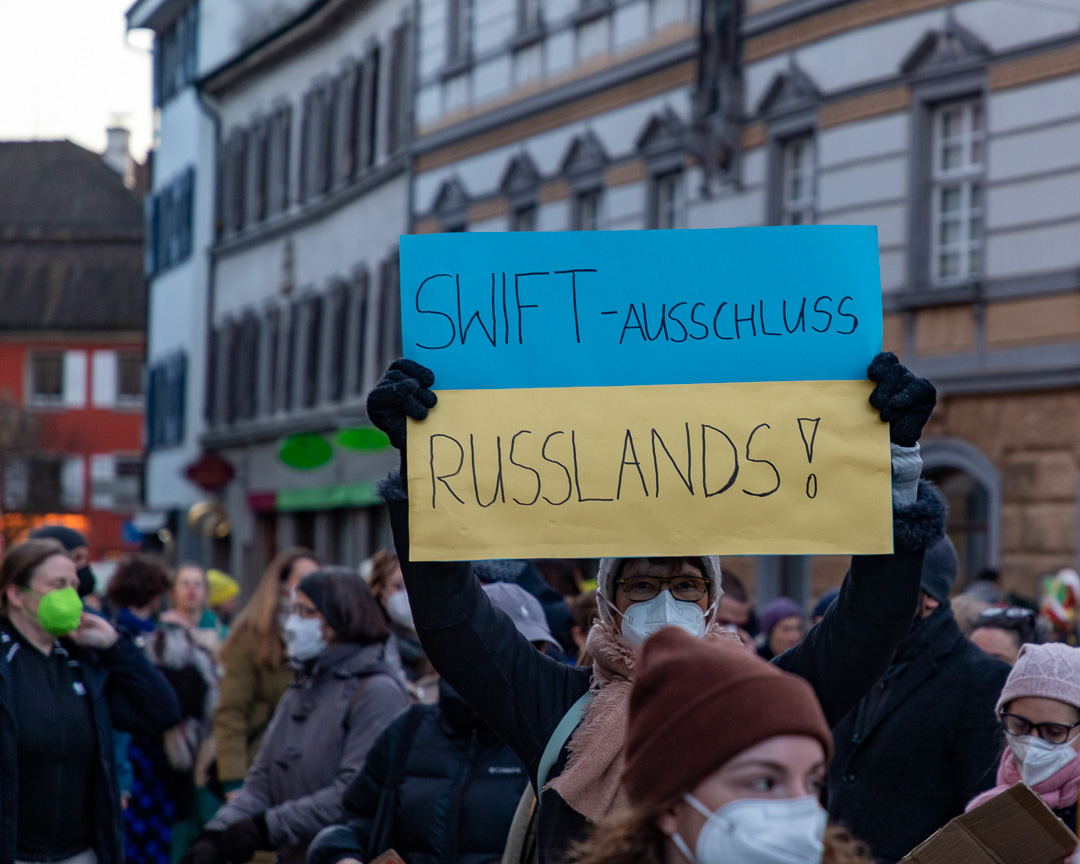 SWIFT-AUSSCHLUSS
RUSSLANDS!
Columbia